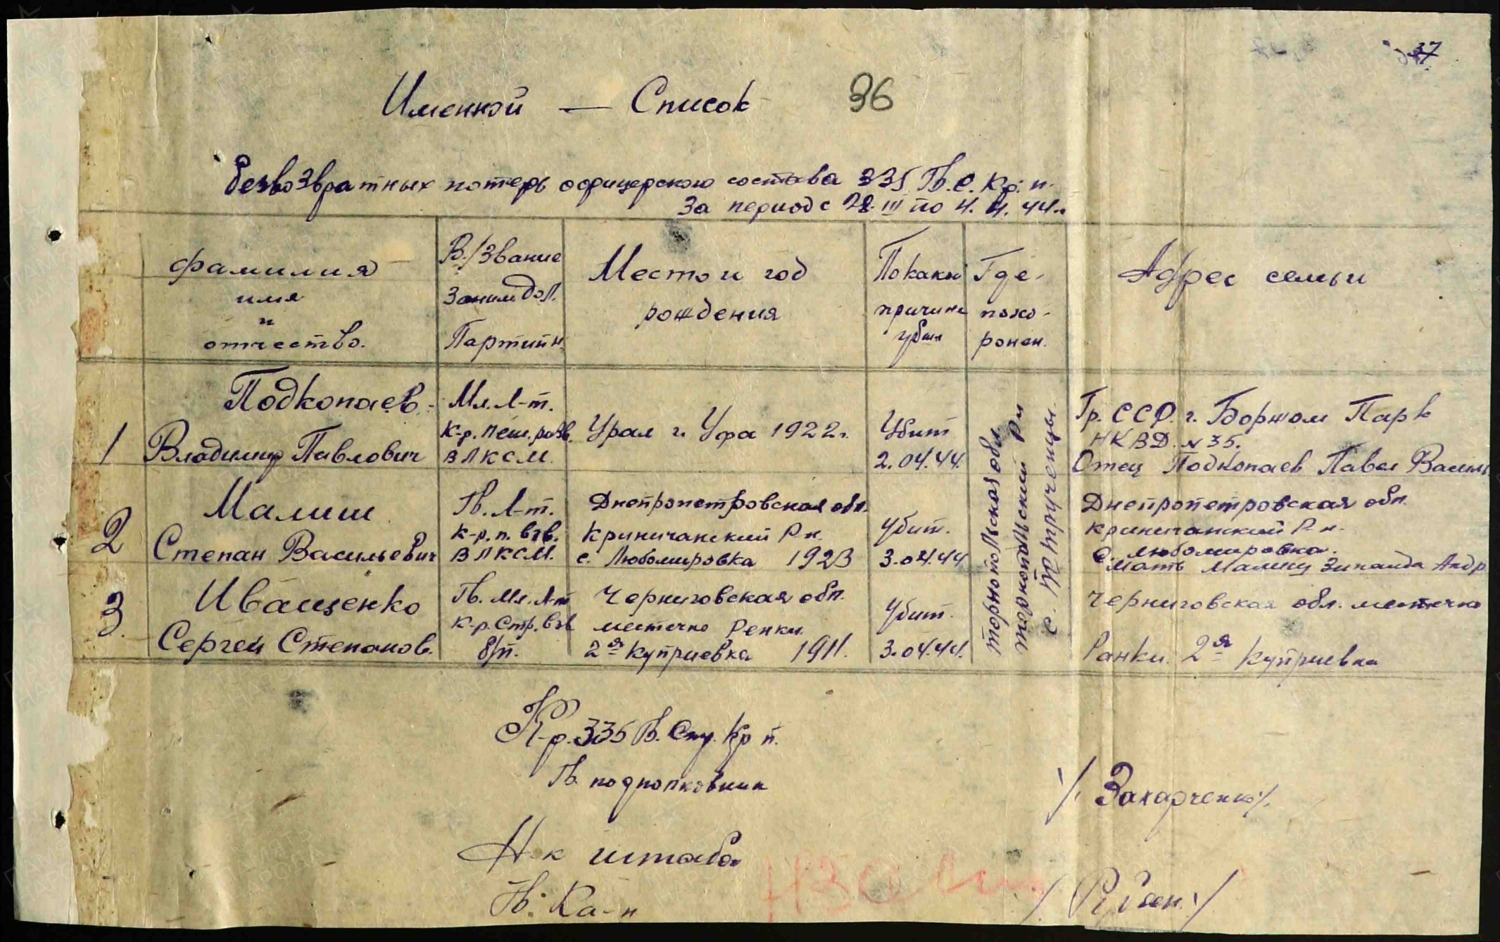 37
Именной — Список 36
безвозвратных потерь офицерского состава 335 Гв. С. Кр. п.
За период с 28. III по 4. 4. 44 г.
фамилия
имя
и
отчество.
В./Звание
Заним дол.
Партийн.
Место и год
рождения
По какой
причине
убыл
Где-
похо-
ронен.
Адрес семьи
1
Подкопаев
Владимир Павлович
Мл. Л-т.
К-р. пеш. разв.
ВЛКСМ.
Урал г. Уфа 1922 г.
Убит
2.04.44.
Гр. ССР. г. Боржом Парк
НКВД. № 35.
Отец Подкопаев Павел Василь
2
Малиш
Степан Васильевич
Гв. Л-т.
К-р. п. взв.
ВЛКСМ.
Днепропетровская обл.
Криничанский Р-н.
с. Любомировка 1923
Убит.
3.04.44
Днепропетровская обл.
Криничанский Р-н.
с. Любомировка.
Мать Малиш Зинаида Андр
3.
Иващенко
Сергей Степанов.
Гв. Мл. Л-т
К-р. Стр. взв
б/п.
Черниговская обл.
местечко Репки
2я Куприевка 1911.
Убит.
3.04.44.
Черниговская обл. местечко
Ранки 2я Куприевка
Торнопольская обл.
Торнопольский р-н
с.
К-р. 335 Гв. Стр. Кр п.
Гв. подполковник
/ Захарченко /.
Н-к штаба
Гв. Ка-н